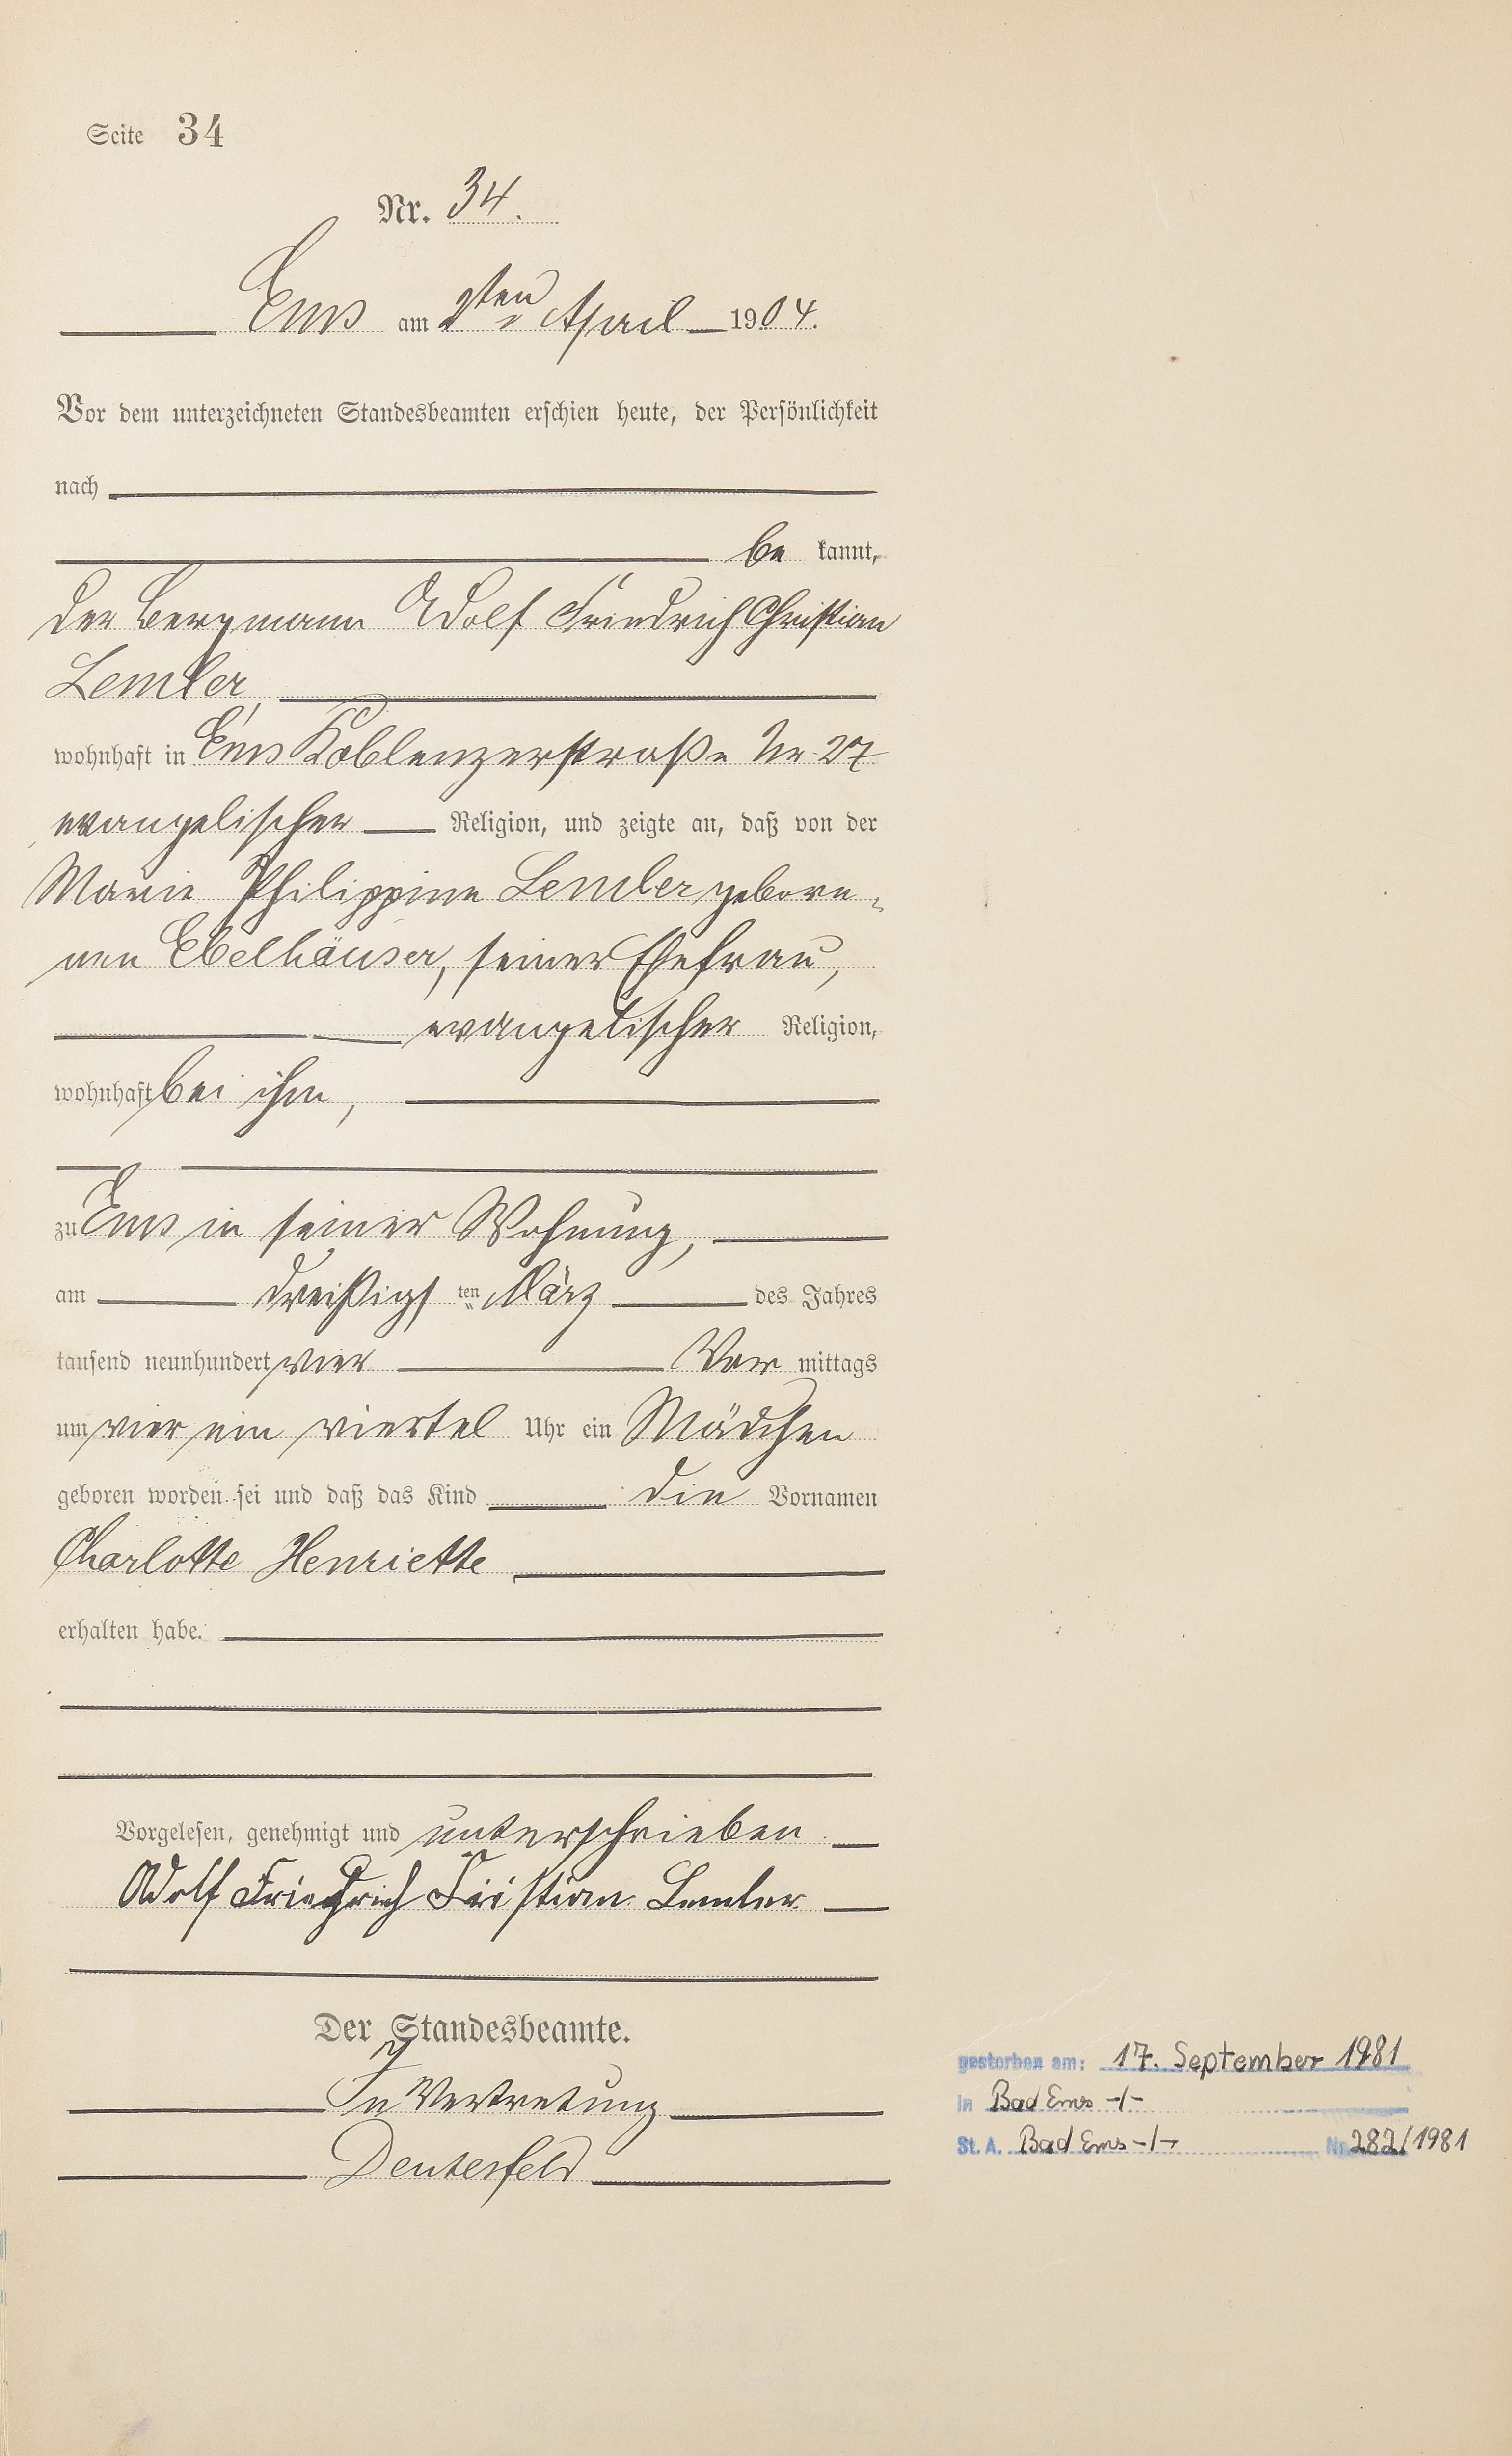 Seite 34
Nr. 34.
Ems am 2ten April 1904.
Vor dem unterzeichneten Standesbeamten erschien heute, der Persönlichkeit
nach
be kannt,
der Bergmann Adolf Friedrich Christian
Lemler,
wohnhaft in Ems Koblenzerstraße Nr 27
evangelischer Religion, und zeigte an, daß von der
Marie Philippine Lemler gebore-
nen Ebelhäuser, seiner Ehefrau,
evangelischer Religion,
wohnhaft bei ihm,
zu Ems in seiner Wohnung,
am dreißigsten März des Jahres
tausend neunhundert vier Vor mittags
um vier ein viertel Uhr ein Mädchen
geboren worden sei und daß das Kind die Vornamen
Charlotte Henriette
erhalten habe.
Vorgelesen, genehmigt und unterschrieben
Adolf Friedrich Kristian Lemler
Der Standesbeamte.
In Vertretung
Deutesfeld
gestorben am: 17. September 1981
in Bad Ems -/-
St. A. Bad Ems -/- Nr. 282/1981